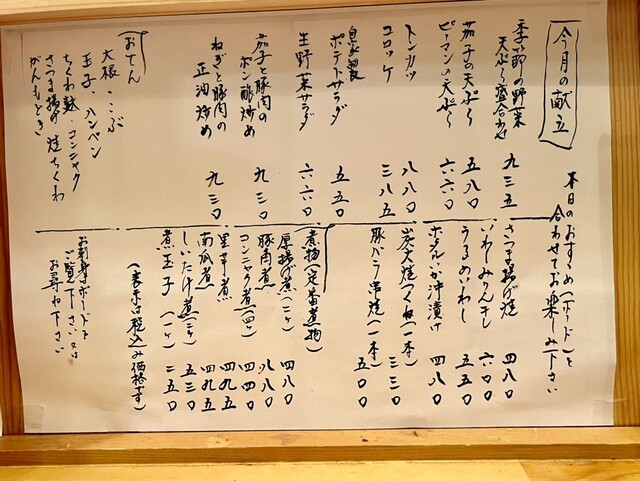 今月の献立
本日のおすすめ(ボード)と
合わせてお楽しみ下さい
季節の野菜
天ぷら盛合わせ 九三五
茄子の天ぷら 五八〇
ピーマンの天ぷら 六六〇
トンカツ 八八〇
コロッケ 三八五
自家製
ポテトサラダ 五五〇
生野菜サラダ 六六〇
茄子と豚肉の
ポン酢炒め 九三〇
ねぎと豚肉の
正油炒め 九三〇
おでん
大根・こぶ
玉子・ハンペン
ちくわ麩・コンニャク
さつま揚げ 焼ちくわ
がんもどき
さつま揚げ焼 四八〇
いわしみりん干し 六〇〇
うるめいわし 五五〇
ホタルいか沖漬け 四八〇
炭火焼つくね(一本) 三三〇
豚バラ串焼(一本) 五〇〇
煮物(定番煮物)
厚揚げ煮(二ヶ) 四八〇
豚角煮(二ヶ) 八八〇
コンニャク煮(四ヶ) 四四〇
里芋煮 四九五
南瓜煮 四九五
しいたけ煮(三ヶ) 五五〇
煮玉子(一ヶ) 二五〇
(表示は税込み価格です)
お刺身はボードを
ご覧下さい又は
お尋ね下さい